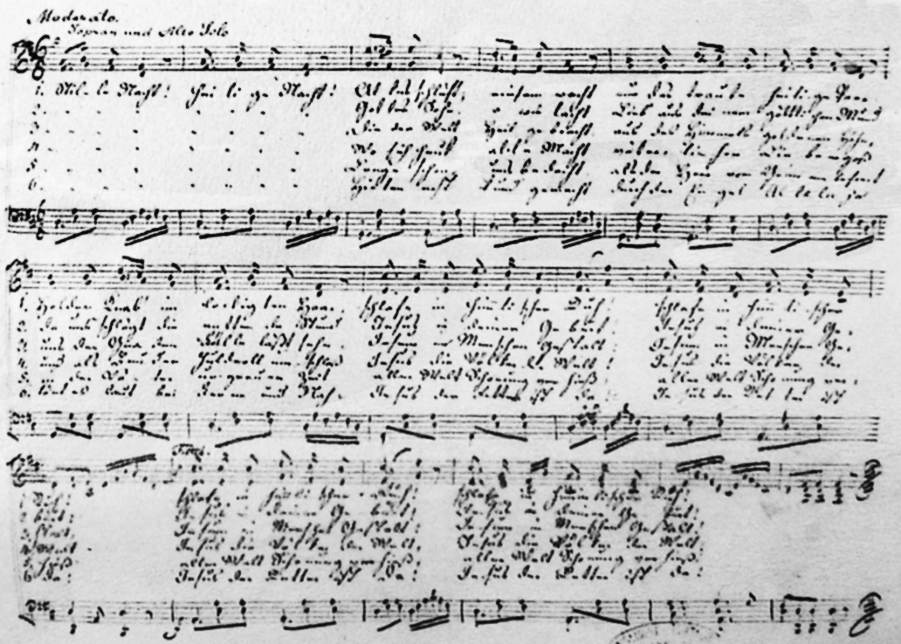 Moderato.
Sopran und Alto Solo
1. Stille Nacht! Heilige Nacht! Alles schläft, einsam wacht nur das traute heilige Paar
2. Gottes Sohn, o wie lacht Lieb aus deinem göttlichen Mund
3. Die der Welt Heil gebracht, aus des Himmels goldenen Höhn,
4. Wo sich heut alle Macht väterlicher Liebe ergoß
5. Lange schon uns bedacht als der Herr vom Grimme befreit
6. Hirten erst kund gemacht durch der Engel Alleluja
1. Holder Knab im lockigten Haar, schlafe in himmlischer Ruh! schlafe in himmlischer
2. Da uns schlägt die rettende Stund Jesus in deiner Geburt! Jesus in deiner Ge-
3. uns der Gnaden Fülle läßt sehn, Jesum in Menschen Gestalt! Jesum in Menschen Ge-
4. und als Bruder huldvoll umschloß Jesus die Völker der Welt! Jesus die Völker der
5. In der Väter urgrauer Zeit aller Welt Schonung verhieß! aller Welt Schonung ver-
6. Tönt es laut bei Ferne und Nah, Jesus der Retter ist da! Jesus der Retter ist
Tutti
1 Ruh! schlafe in himmlischer Ruh! schlafe in himmlischer Ruh!
2 burt! Jesus in deiner Geburt! Jesus in deiner Geburt!
3 stalt! Jesum in Menschen Gestalt! Jesum in Menschen Gestalt!
4 Welt Jesus die Völker der Welt, Jesus die Völker der Welt!
5 hieß! aller Welt Schonung verhieß! aller Welt Schonung verhieß!
6 da! Jesus der Retter ist da! Jesus der Retter ist da!